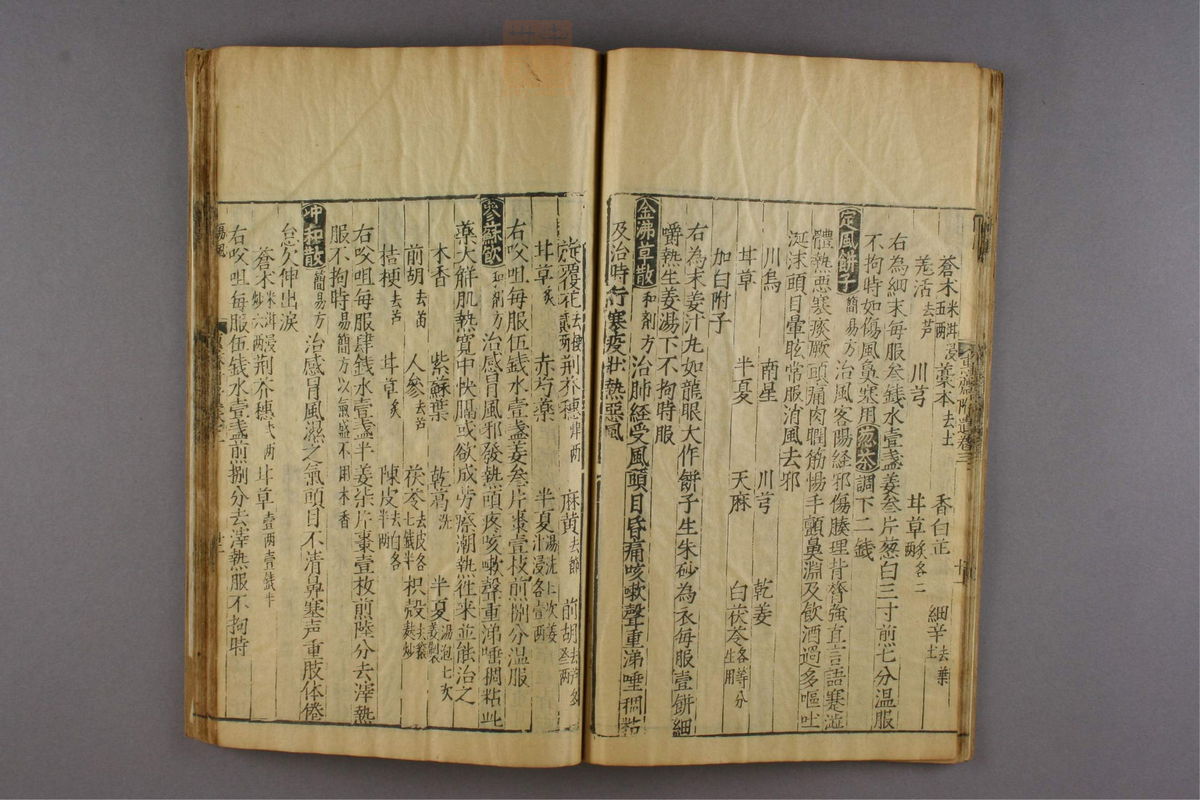 蒼朮米泔浸五兩 藁本去土 香白芷 細辛去葉土
羌活去芦 川芎 甘草炙各二兩
右為細末每服叁錢水壹盞姜叁片葱白三寸煎七分温服
不拘時如傷風鼻塞用葱茶調下二錢
定風餅子簡易方治風客陽経邪傷腠理背膂強直言語蹇澁
體熱悪寒痰厥頭痛肉瞤筋惕手顫鼻淵及飲酒過多嘔吐
涎沫頭目暈眩常服消風去邪
川烏 南星 川芎 乾姜
甘草 半夏 天麻 白茯苓各等分生用
加白附子
右為末姜汁丸如龍眼大作餅子生朱砂為衣每服壹餅細
嚼熱生姜湯下不拘時服
金沸草散和剤方治肺経受風頭目昏痛咳嗽聲重涕唾稠粘
及治時行寒疫壮熱惡風
旋覆花去梗貳兩 荆芥穗肆兩 麻黄去節 前胡去芦各叁兩
甘草炙 赤芍薬 半夏湯洗七次姜汁浸各壹兩
右㕮咀每服伍錢水壹盞姜叁片棗壹枚煎捌分温服
參蘇飲和剤方治感冒風邪發熱頭疼咳嗽聲重涕唾稠粘此
藥大解肌熱寛中快膈或欲成労瘵潮熱往来並能治之
木香 紫蘇葉 乾葛洗 半夏湯泡七次姜製
前胡去苗 人參去芦 茯苓去皮各七錢半 枳殻去穰麩炒
桔梗去芦 甘草炙 陳皮去白各半兩
右㕮咀每服肆錢水壹盞半姜柒片棗壹枚煎陸分去滓熱
服不拘時易簡方以氣盛不用木香
冲和散簡易方治感冒風濕之氣頭目不清鼻塞声重肢体倦
怠欠伸出涙
蒼朮米泔浸炒六兩 荆芥穗弍兩 甘草壹兩壹錢半
右㕮咀每服伍錢水壹盞煎捌分去滓熱服不拘時
傷風